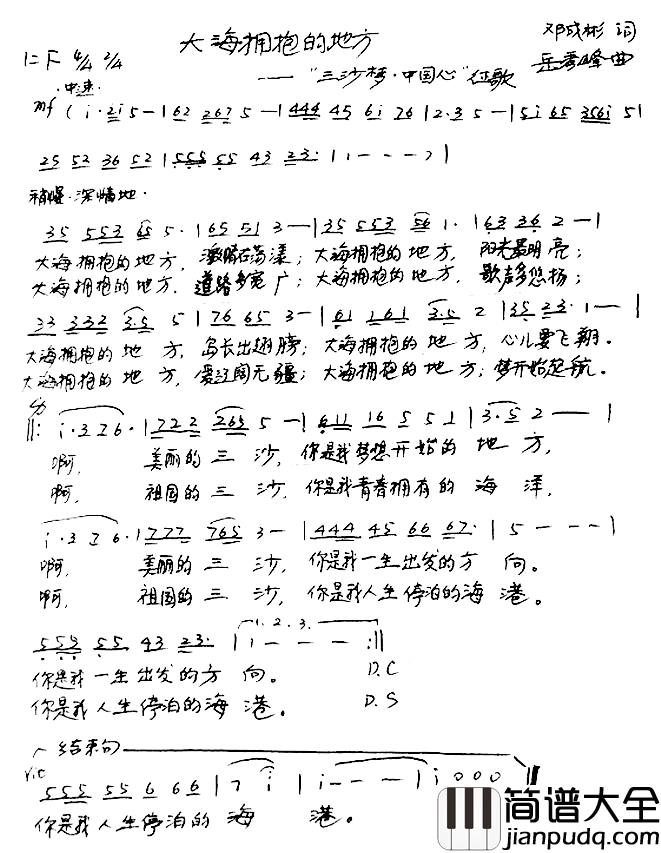 大海拥抱的地方
邓成彬 词
岳秀峰 曲
1=F 4/4 2/4
——"三沙梦·中国心"征歌
中速
mf ( i· 2i 5 — | 62 267 5 — | 444 45 6i 76 | 2·3 5 — | 5i 65 356i 5 |
25 52 36 52 | 555 55 43 23· | 1 — — — ) |
稍慢·深情地·
35 553 65 5· | 65 51 3 — | 35 553 56 1· | 63 36 2 — |
大海拥抱的地方, 激情在荡漾; 大海拥抱的地方, 阳光最明亮;
大海拥抱的地方, 道路多宽广; 大海拥抱的地方, 歌声多悠扬;
33 332 3·5 5 | 76 65 3 — | 61 161 3·5 2 | 35 23· 1 — |
大海拥抱的地方, 岛长出翅膀; 大海拥抱的地方, 心儿要飞翔。
大海拥抱的地方, 爱辽阔无疆; 大海拥抱的地方; 梦开始起航。
||: i·3 26· | 722 265 5 — | 611 16 5 5 1 | 3·5 2 — — |
啊, 美丽的三沙, 你是我梦想开始的地方,
啊, 祖国的三沙, 你是我青春拥有的海洋,
i·3 26· | 777 765 3 — | 444 45 66 67· | 5 — — — |
啊, 美丽的三沙, 你是我一生出发的方向。
啊, 祖国的三沙, 你是我人生停泊的海港。
1. 2. 3.
555 55 43 23· | i — — — :||
你是我一生出发的方向。 D.C
你是我人生停泊的海港。 D.S
结束句
555 55 6 66 | 7 i | i — — — | i 0 0 0 ||
你是我人生停泊的海港。
简谱大全
jianpudq.com